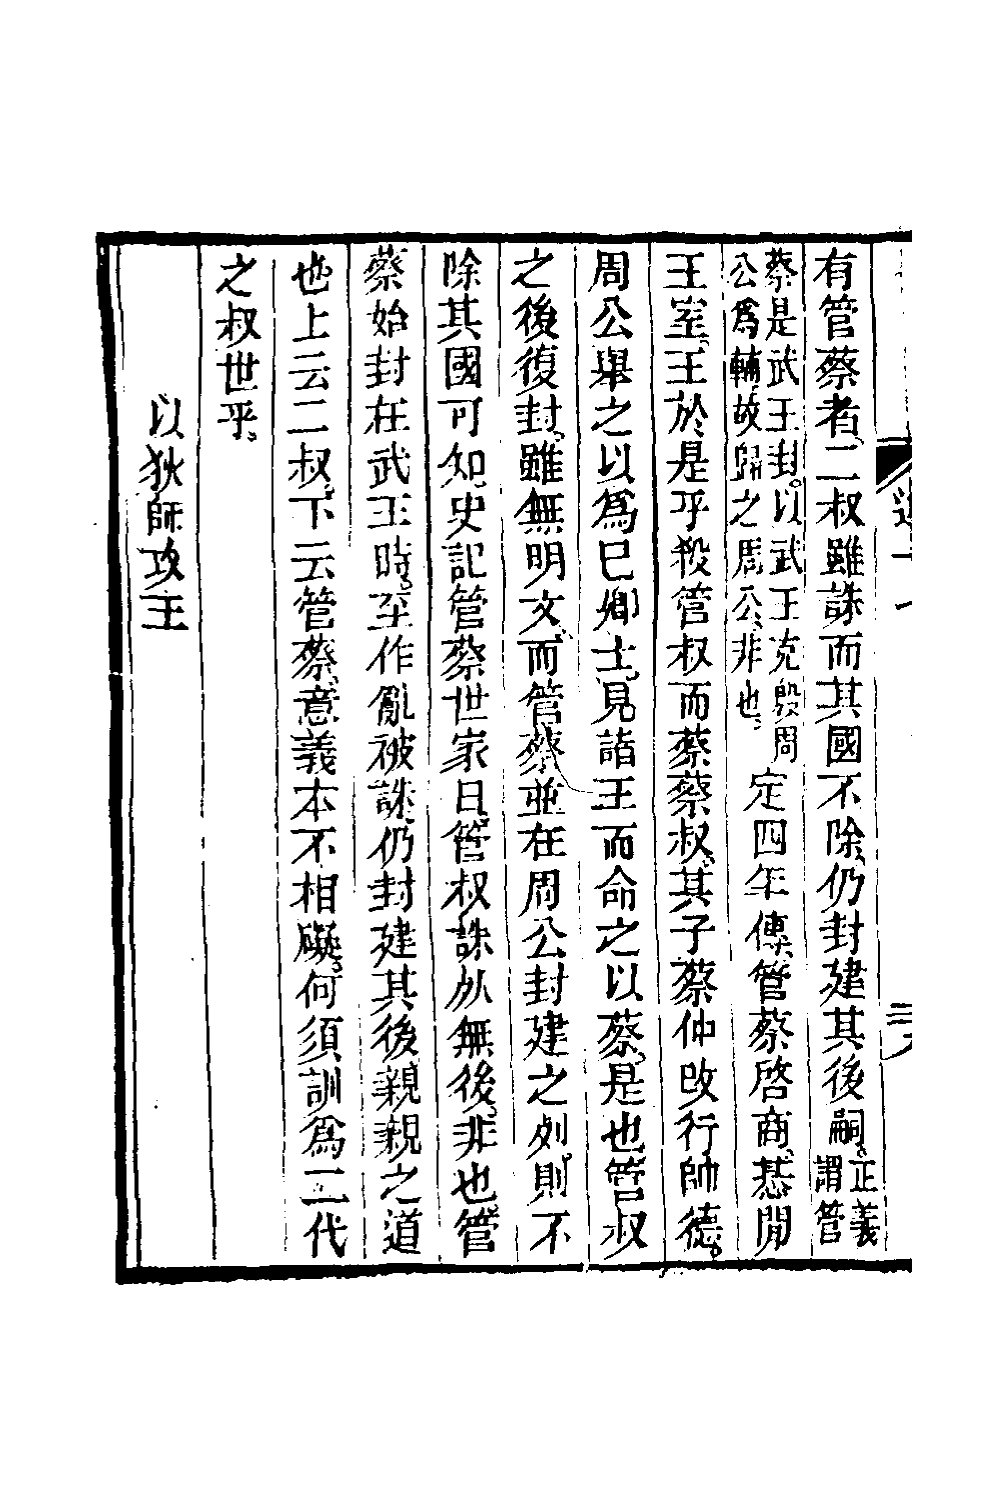 有管蔡者、二叔雖誅而其國不除、仍封建其後嗣。正義謂管
蔡是武王封。以武王克殷周公爲輔、故歸之周公、非也、定四年傳、管蔡啓商。惎閒
王室、王於是乎殺管叔而蔡蔡叔。其子蔡仲改行帥德。
周公舉之以爲己卿士。見諸王而命之以蔡、是也。管叔
之後復封。雖無明文、而管蔡並在周公封建之列、則不
除其國可知。史記管蔡世家曰。管叔誅死無後。非也。管
蔡始封在武王時。至作亂被誅、仍封建其後、親親之道
也。上云二叔、下云管蔡、意義本不相礙、何須訓爲二代
之叔世乎、
以狄師攻王